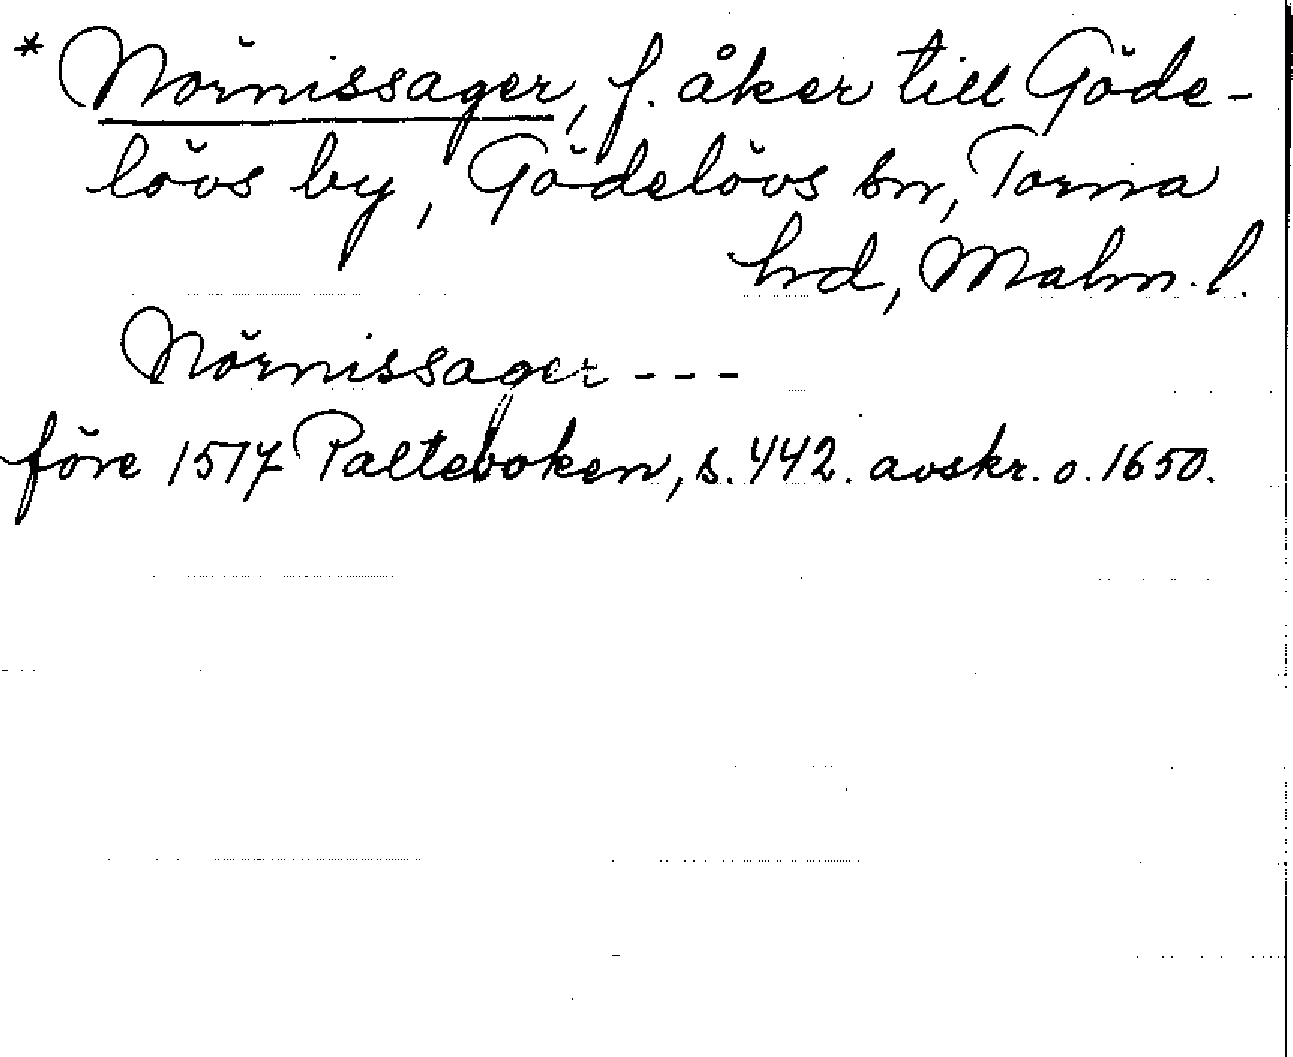 * Nörnissager, f. åker till Göde-
lövs by, Gödelövs sn, Torna
hrd, Malm. l.
Nörnissager - - -
före 1517 Palteboken, s. 442. avskr. o. 1650.